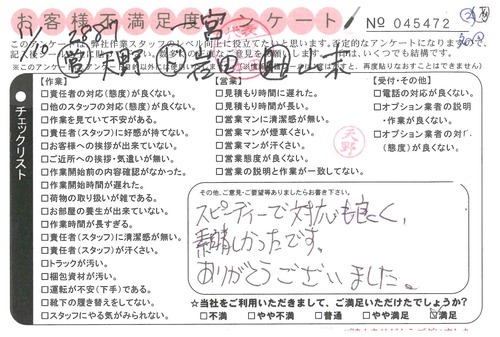 お客様不満足度アンケート
No 045472
【作業】
□責任者の対応(態度)が良くない。
□他のスタッフの対応(態度)が良くない。
□作業を見ていて安心がある。
□責任者(スタッフ)に好感が持てない。
□お客様への挨拶が出来ていない。
□ご近所への挨拶・気遣いが無い。
□作業開始前の内容確認がなかった。
□作業開始時間が遅れた。
□荷物の取り扱いが雑である。
□お部屋の養生が出来ていない。
□作業時間が長すぎる。
□責任者(スタッフ)に清潔感が無い。
□責任者(スタッフ)が汗くさい。
□トラックが汚い。
□梱包資材が汚い。
□運転が不安(下手)である。
□靴下の履き替えをしてない。
□スタッフにやる気がみられない。
【営業】
□見積もり時間に遅れた。
□見積もり時間が長い。
□営業マンに清潔感が無い。
□営業マンが煙草くさい。
□営業マンが汗くさい。
□営業態度が良くない。
□営業の説明と作業が一致してない。
【受付・その他】
□電話の対応が良くない。
□オプション業者の説明
・作業が良くない。
□オプション業者の対
(態度)が良くない。
天野
チェックリスト
その他、ご意見・ご要望等ありましたらお書き下さい。
スピーディーで対応も良く、
素晴しかったです。
ありがとうございました。
☆当社をご利用いただきまして、ご満足いただけたでしょうか?
□不満 □やや不満 □普通 □やや満足 □満足